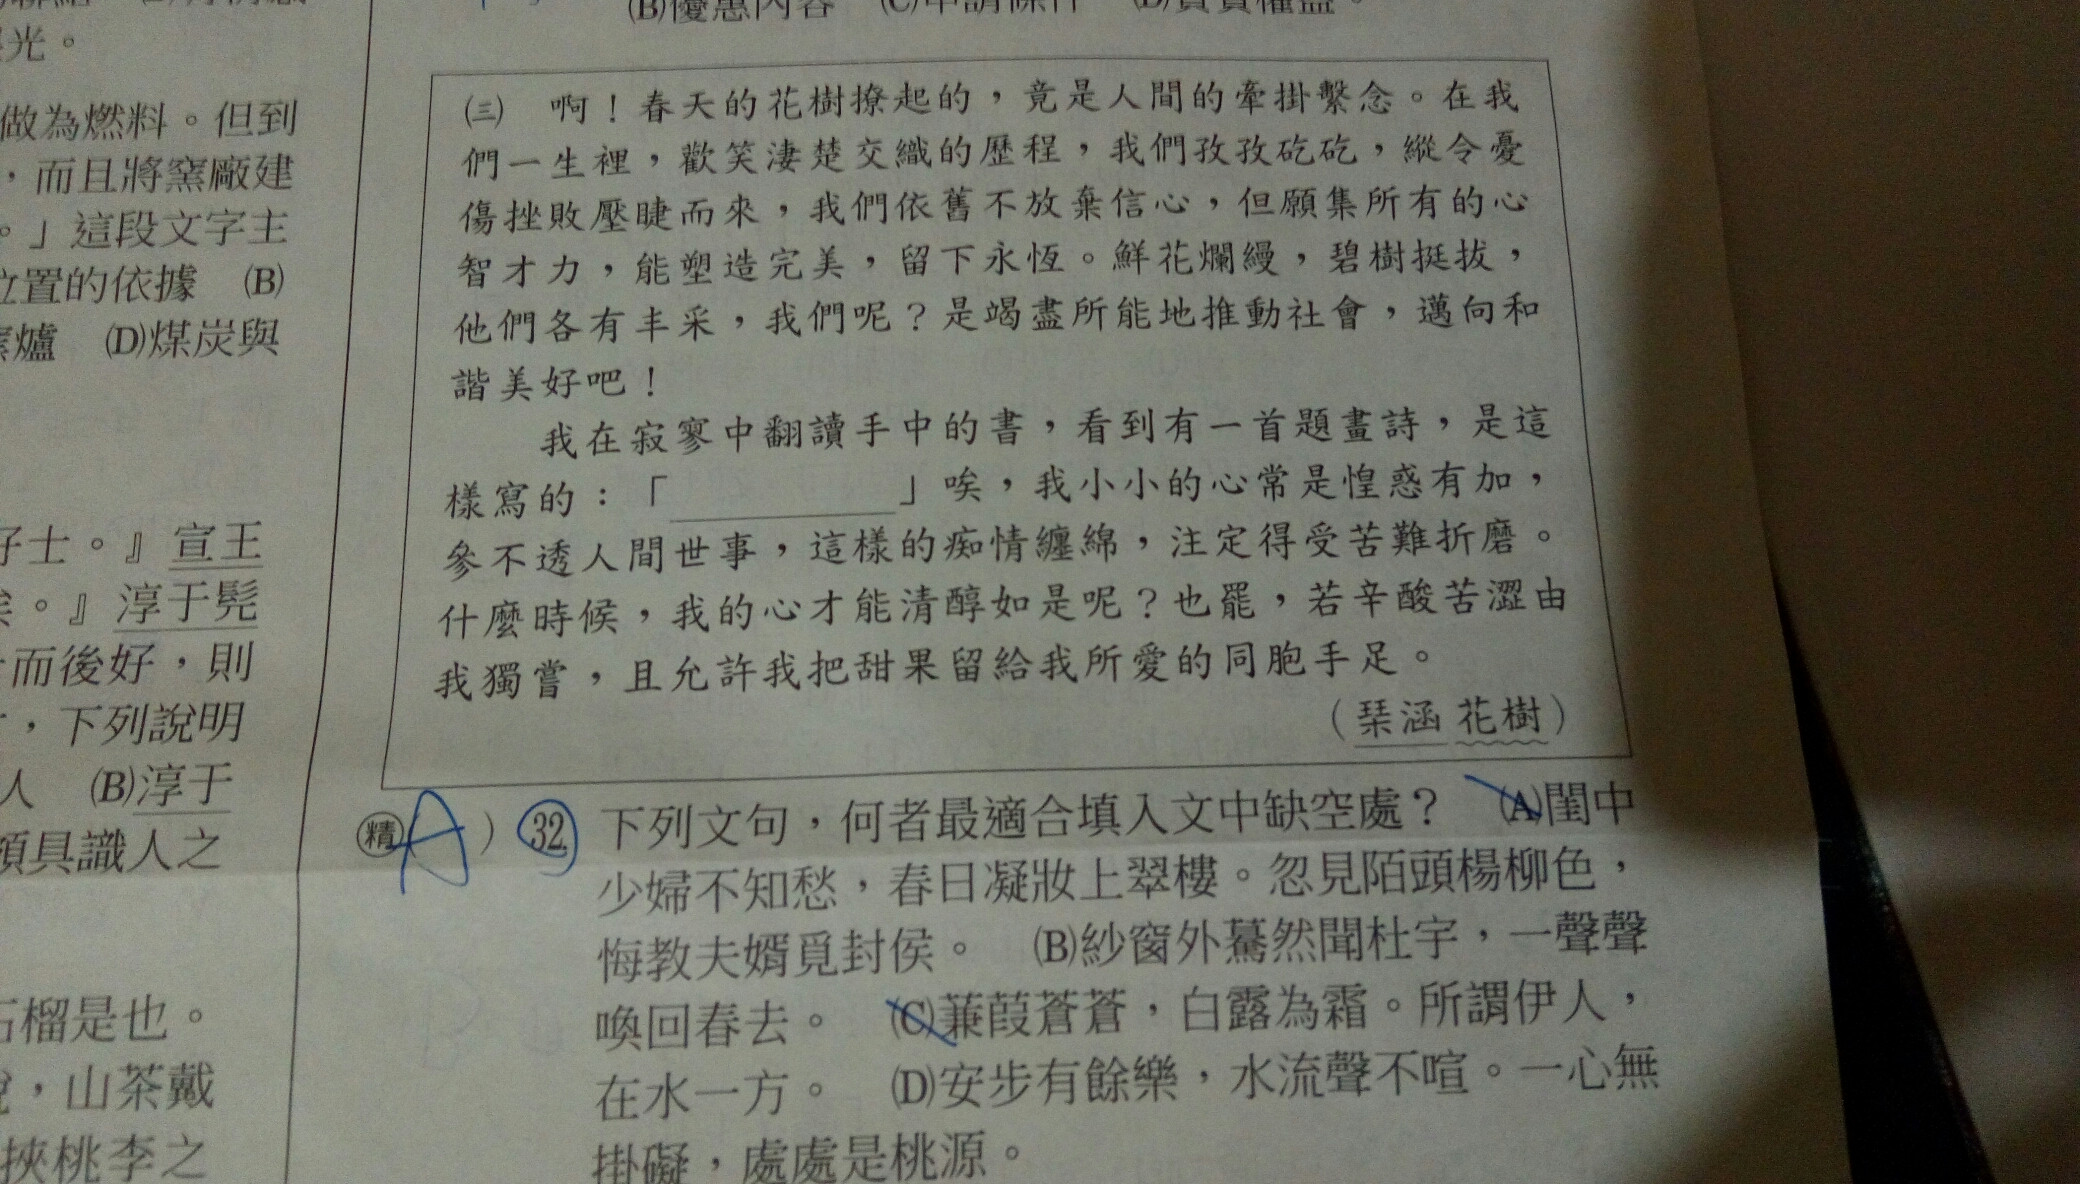 光。
做為燃料。但到
，而且將窯廠建
。」這段文字主
位置的依據　(B)
窯爐　(D)煤炭與
好士。』宣王
矣。』淳于髡
而後好，則
，下列說明
人　(B)淳于
須具識人之
石榴是也。
說，山茶戴
挾桃李之
(B)優惠內容　(C)申請條件　(D)買賣權益。
㈢　啊！春天的花樹撩起的，竟是人間的牽掛繫念。在我
們一生裡，歡笑淒楚交織的歷程，我們孜孜矻矻，縱令憂
傷挫敗壓睫而來，我們依舊不放棄信心，但願集所有的心
智才力，能塑造完美，留下永恆。鮮花爛縵，碧樹挺拔，
他們各有丰采，我們呢？是竭盡所能地推動社會，邁向和
諧美好吧！
我在寂寥中翻讀手中的書，看到有一首題畫詩，是這
樣寫的：「　　　　」唉，我小小的心常是惶惑有加，
參不透人間世事，這樣的痴情纏綿，注定得受苦難折磨。
什麼時候，我的心才能清醇如是呢？也罷，若辛酸苦澀由
我獨嘗，且允許我把甜果留給我所愛的同胞手足。
（琹涵 花樹）
精 A ) 32. 下列文句，何者最適合填入文中缺空處？　(A)閨中
少婦不知愁，春日凝妝上翠樓。忽見陌頭楊柳色，
悔教夫婿覓封侯。　(B)紗窗外驀然聞杜宇，一聲聲
喚回春去。　(C)蒹葭蒼蒼，白露為霜。所謂伊人，
在水一方。　(D)安步有餘樂，水流聲不喧。一心無
掛礙，處處是桃源。